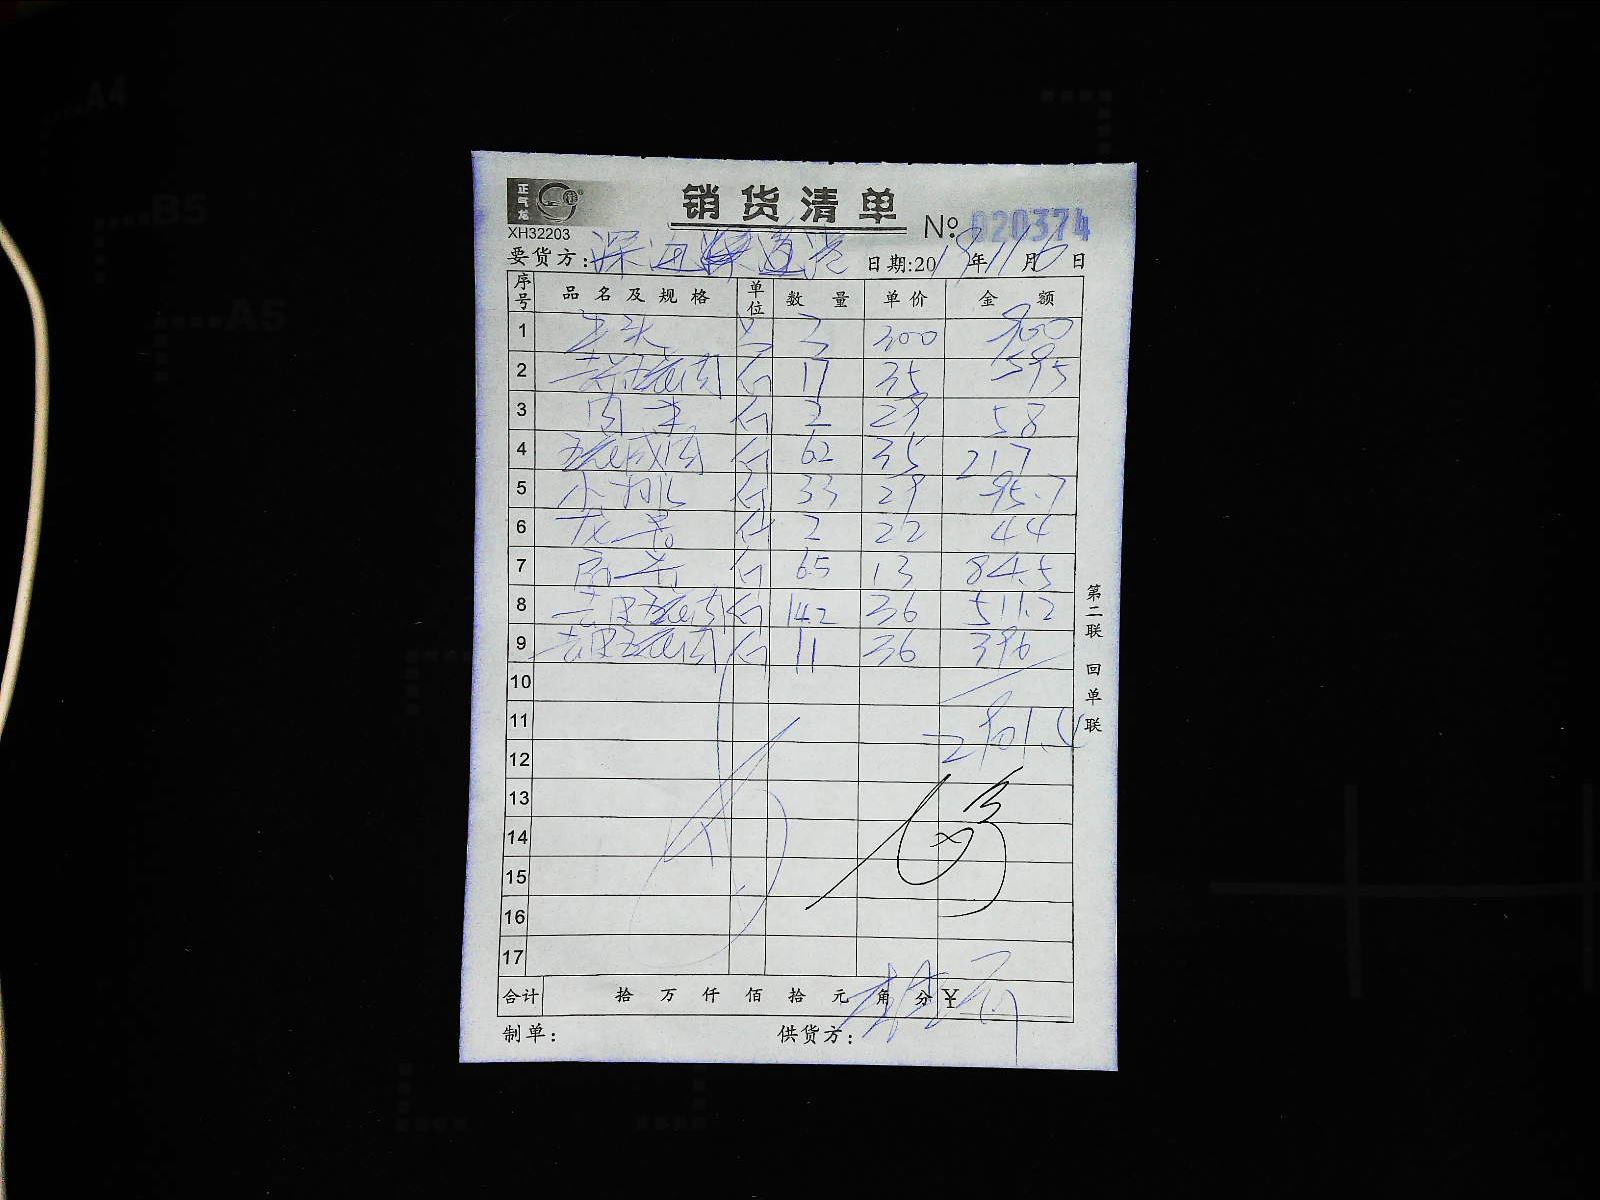 正气龙
XH32203
销货清单
No 020374
要货方: 深
日期:2019年11月6日
序号 品名及规格 单位 数量 单价 金额
1 3 300 900
2 去皮五花肉 斤 17 35 595
3 斤 2 29 58
4 斤 62 35 217
5 小排 斤 33 29 95.7
6 龙骨 斤 2 22 44
7 斤 65 13 84.5
8 去皮五花肉 斤 142 36 511.2
9 去皮五花肉 斤 11 36 396
10
11 2901.4
12
13
14
15
16
17
合计 拾 万 仟 佰 拾 元 角 分 ¥
制单: 供货方:
第二联 回单联
A4
B5
A5